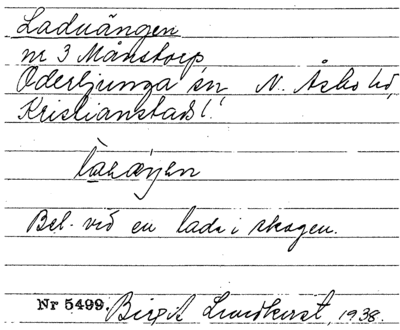 Laduängen
nr 3 Månstorp
Oderljunga sn, N. Åsbo hd,
Kristianstads l.
Bel. vid en lada i skogen.
Nr 5499. Birgit Lundkvist, 1938.